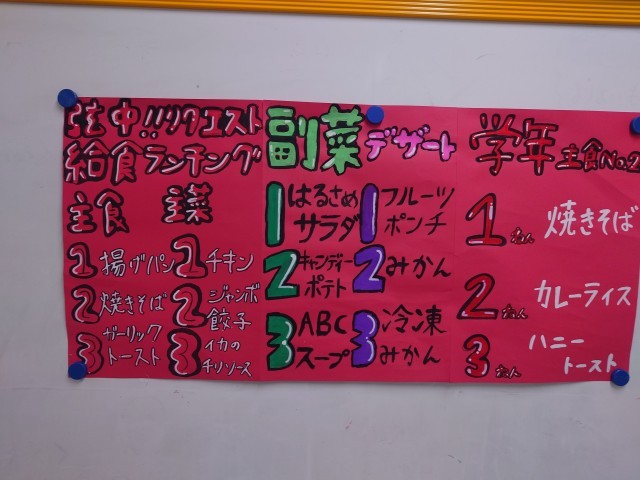 弦中!!リクエスト
給食ランチング
主食 主菜
1 揚げパン 1 チキン
2 焼きそば 2 ジャンボ餃子
3 ガーリックトースト 3 イカのチリソース
副菜 デザート
1 はるさめサラダ 1 フルーツポンチ
2 キャンディーポテト 2 みかん
3 ABCスープ 3 冷凍みかん
学年 主食No.2
1 焼きそば
2 カレーライス
3 ハニートースト